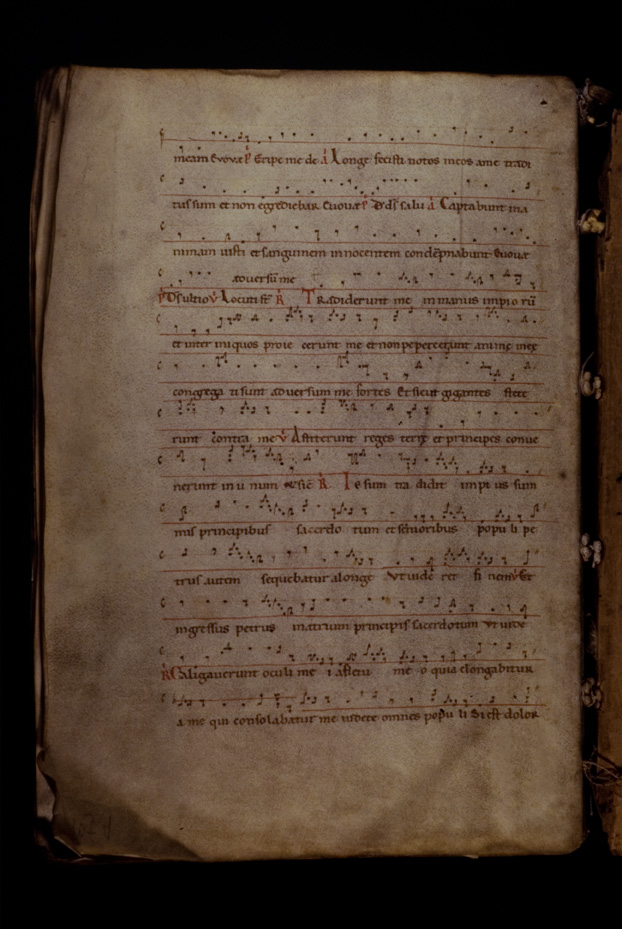 meam Evovae P Eripe me de a Longe fecisti notos meos a me tradi
tus sum et non egrediebar Evovae P Ds ds salu a Captabunt in a
nimam iusti et sanguinem innocentem condempnabunt Evovae
adversum me
P Ds ultio V Locuti st R TRadiderunt me in manus impio rū
et inter iniquos proie cerunt me et non pepercerunt anime mee
congrega ti sunt adversum me fortes Et sicut gigantes stete
runt contra me V Astiterunt reges terre et principes conve
nerunt in u num R Ie sum tra didit impi us sum
mis principibus sacerdo tum et senioribus popu li pe
trus autem sequebatur a longe Ut vide ret fi nem V Et
ingressus petrus in atrium principis sacerdotum Ut vide
R Caligaverunt oculi me i a fletu me o quia elongabitur
a me qui consolabatur me videte omnes popu li Si est dolor